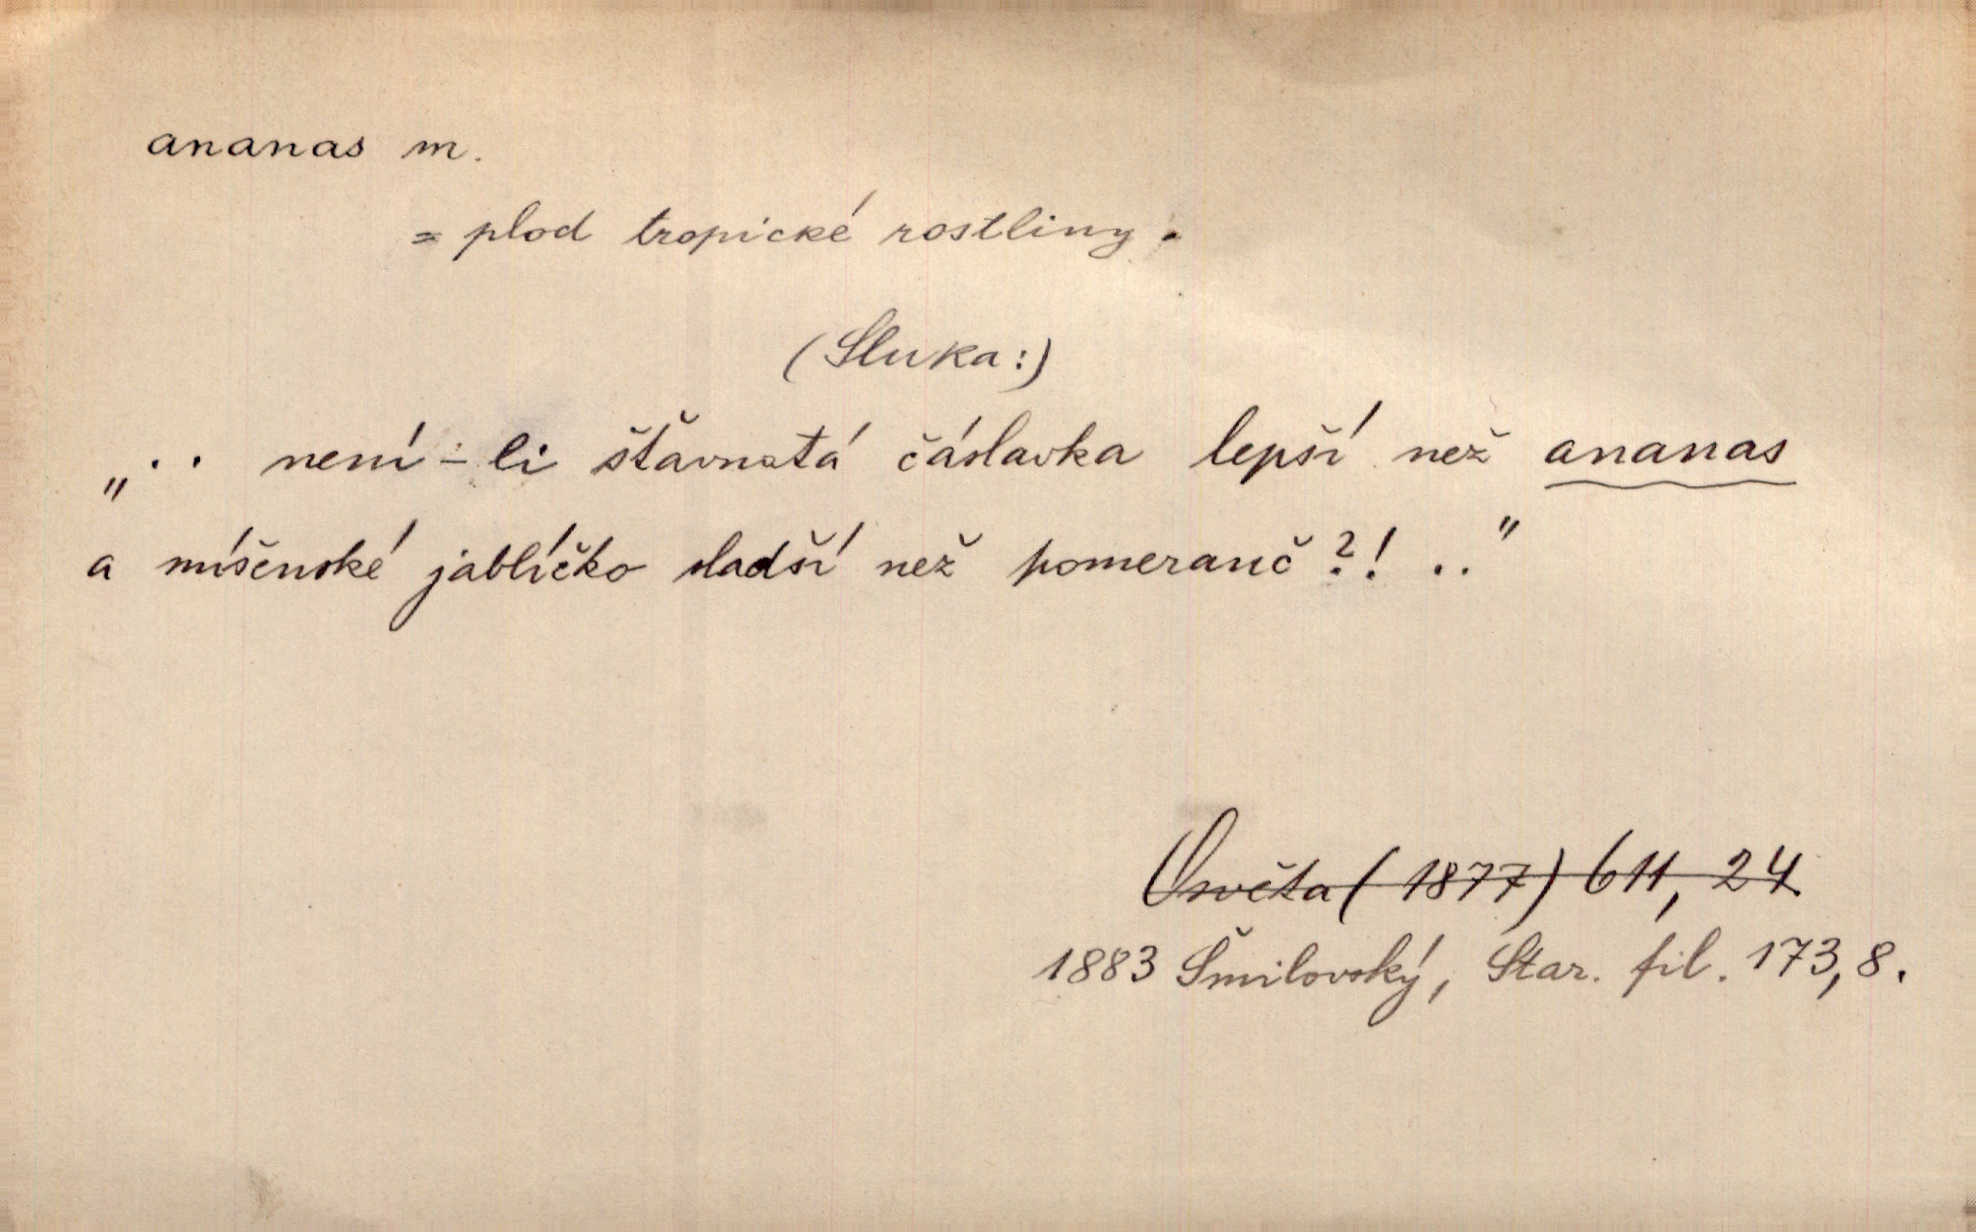 ananas m.
= plod tropické rostliny.
(Sluka:)
„.. není-li šťavnatá čáslavka lepší než ananas
a míšenské jablíčko sladší než pomeranč?! .."
Osvěta (1877) 611, 24
1883 Šmilovský, Star. fil. 173,8.